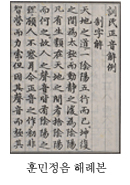 訓民正音解例
制字解
天地之道一陰陽五行而已坤復
之間爲太極而動靜之後爲陰陽
凡有生類在天地之間者捨陰陽
而何之故人之聲音皆有陰陽之
理顧人不察耳今正音之作初非
智營而力索但因其聲音而
훈민정음 해례본